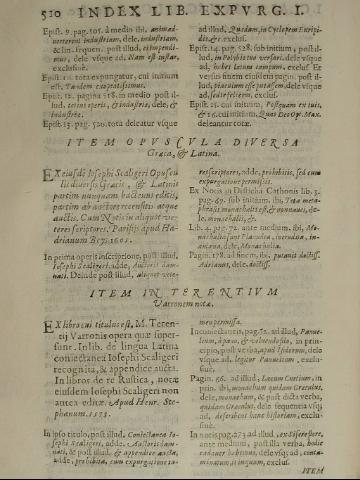 510 INDEX LIB. EXPVRG. I.
Epist. 9. pag. 105. à medio ibi, animad-
verterent industriam, dele, industriam,
& sin. sequen. post illud,
dele vsque ad. Nam est instar,
exclusiuè.
Epist. 10. tota expungatur, cui initium
est. Tandem exoptatissimus.
Epist. 12. pagina 518. in medio post il-
lud. totius operis, & industrie, dele, &
industrie.
Epist. 13. pag. 520. tota deleatur vsque
ad illud, Quidem, in Cyclopem Euripi-
dis, & c. exclus.
Epist. 14. pag. 528. sub initium, post il-
lud, in Polybio tuo versari, dele vsque
ad, habet tamen exclus. Et
versus finem eiusdem pagin. post il-
lud, dele vsque
ad, exclus.
Epist. 15. cui initium, Postquam ex tuis,
& 16. cui initium, Quas Deo Op. Max.
deleantur totæ.
ITEM OPVSCVLA DIVERSA
Græca, & Latina.
EX eiusdé Iosephi Scaligeri Opuscu
lis diuersis Græcis, & Latinis
partim nunquam hactenus editis,
partim ab auctore recensitis atque
auctis. Cum Notis in aliquot ve-
teres scriptores. Parisiis apud Ha-
drianum Beys. 1605.
In prima operis inscriptione, post illud,
Iosephi Scaligeri, adde, Auctoris dam-
nati. Deinde post illud, aliquot vete-
res scriptores, adde, prohibitis, sed cum
expurgatione permissis.
Ex Notis in Disticha Cathonis lib. 3.
pag. 67. sub initium, ibi, Tota meta-
phrasis monachalis est, & nouanea, de-
le, monachalis, &.
Lib. 4. pag. 72. ante medium, ibi, Mo-
nachalis est Planudis, inerudita, in-
concinna, dele, Monachalis.
Pagin. 178. ad finem, ibi, putauit doctiss.
Adrianus, dele. doctiss.
ITEM IN TERENTIVM
Varronem notæ.
EX libro cui titulus est, M. Teren-
tij Varronis opera quæ super-
sunt. In lib. de lingua Latina
coniectanea Iosephi Scaligeri
recognita, & appendice aucta.
In libros de re Rustica, notæ
eiusdem Iosephi Scaligeri non
antea editæ. Apud Henr. Ste-
phanum. 1573.
In ipso titulo, post illud, Coniectanea Io-
sephi Scaligeri, adde, Auctoris dam-
nati, & post illud, & appendice aucta,
adde, prohibita, cum expurgatione ta-
men permissa.
In coniectaneis, pag. 52. ad illud,
in prin-
cipio, post verba, apud fidenum, dele
vsque ad, exclu-
siuè.
Pagin. 96. ad illud, Lacum Curtium, in
prin. ibi, monachum quidam Græculus,
dele, monachum, & post dicta verba,
quidam Græculus, dele sequentia vsq;
ad, describant hanc historiam, exclu-
siuè.
In notis pag. 273. ad illud,
ante medium, post illa verba, hodie
dele vsq; ad,
exclus.
ITEM